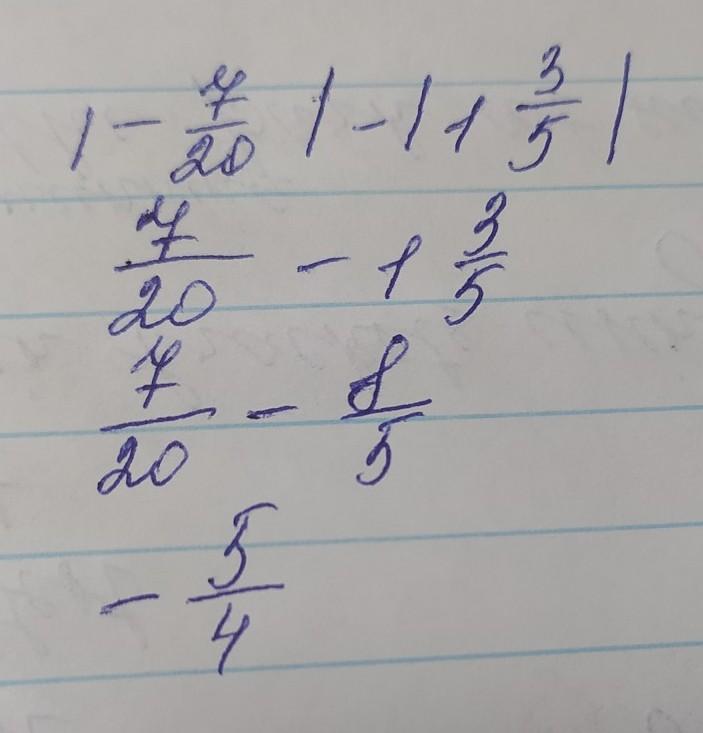 |-7/20| - |1 3/5|
7/20 - 1 3/5
7/20 - 8/5
- 5/4